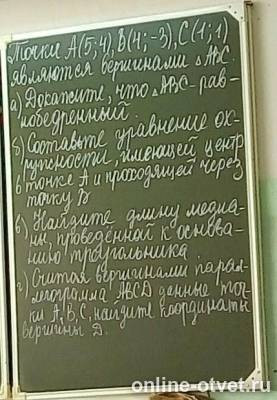 Точки A(5;4), B(4;-3), C(1;1)
являются вершинами △ABC.
а) Докажите, что △ABC-рав-
нобедренный.
б) Составьте уравнение ок-
ружности, имеющей центр
в точке A и проходящей через
точку B
в) Найдите длину медиа-
ны, проведённой к основа-
нию треугольника.
г) Считая вершинами парал-
лелограмма ABCD данные точ-
ки A, B, C, найдите координаты
вершины D.
online-otvet.ru